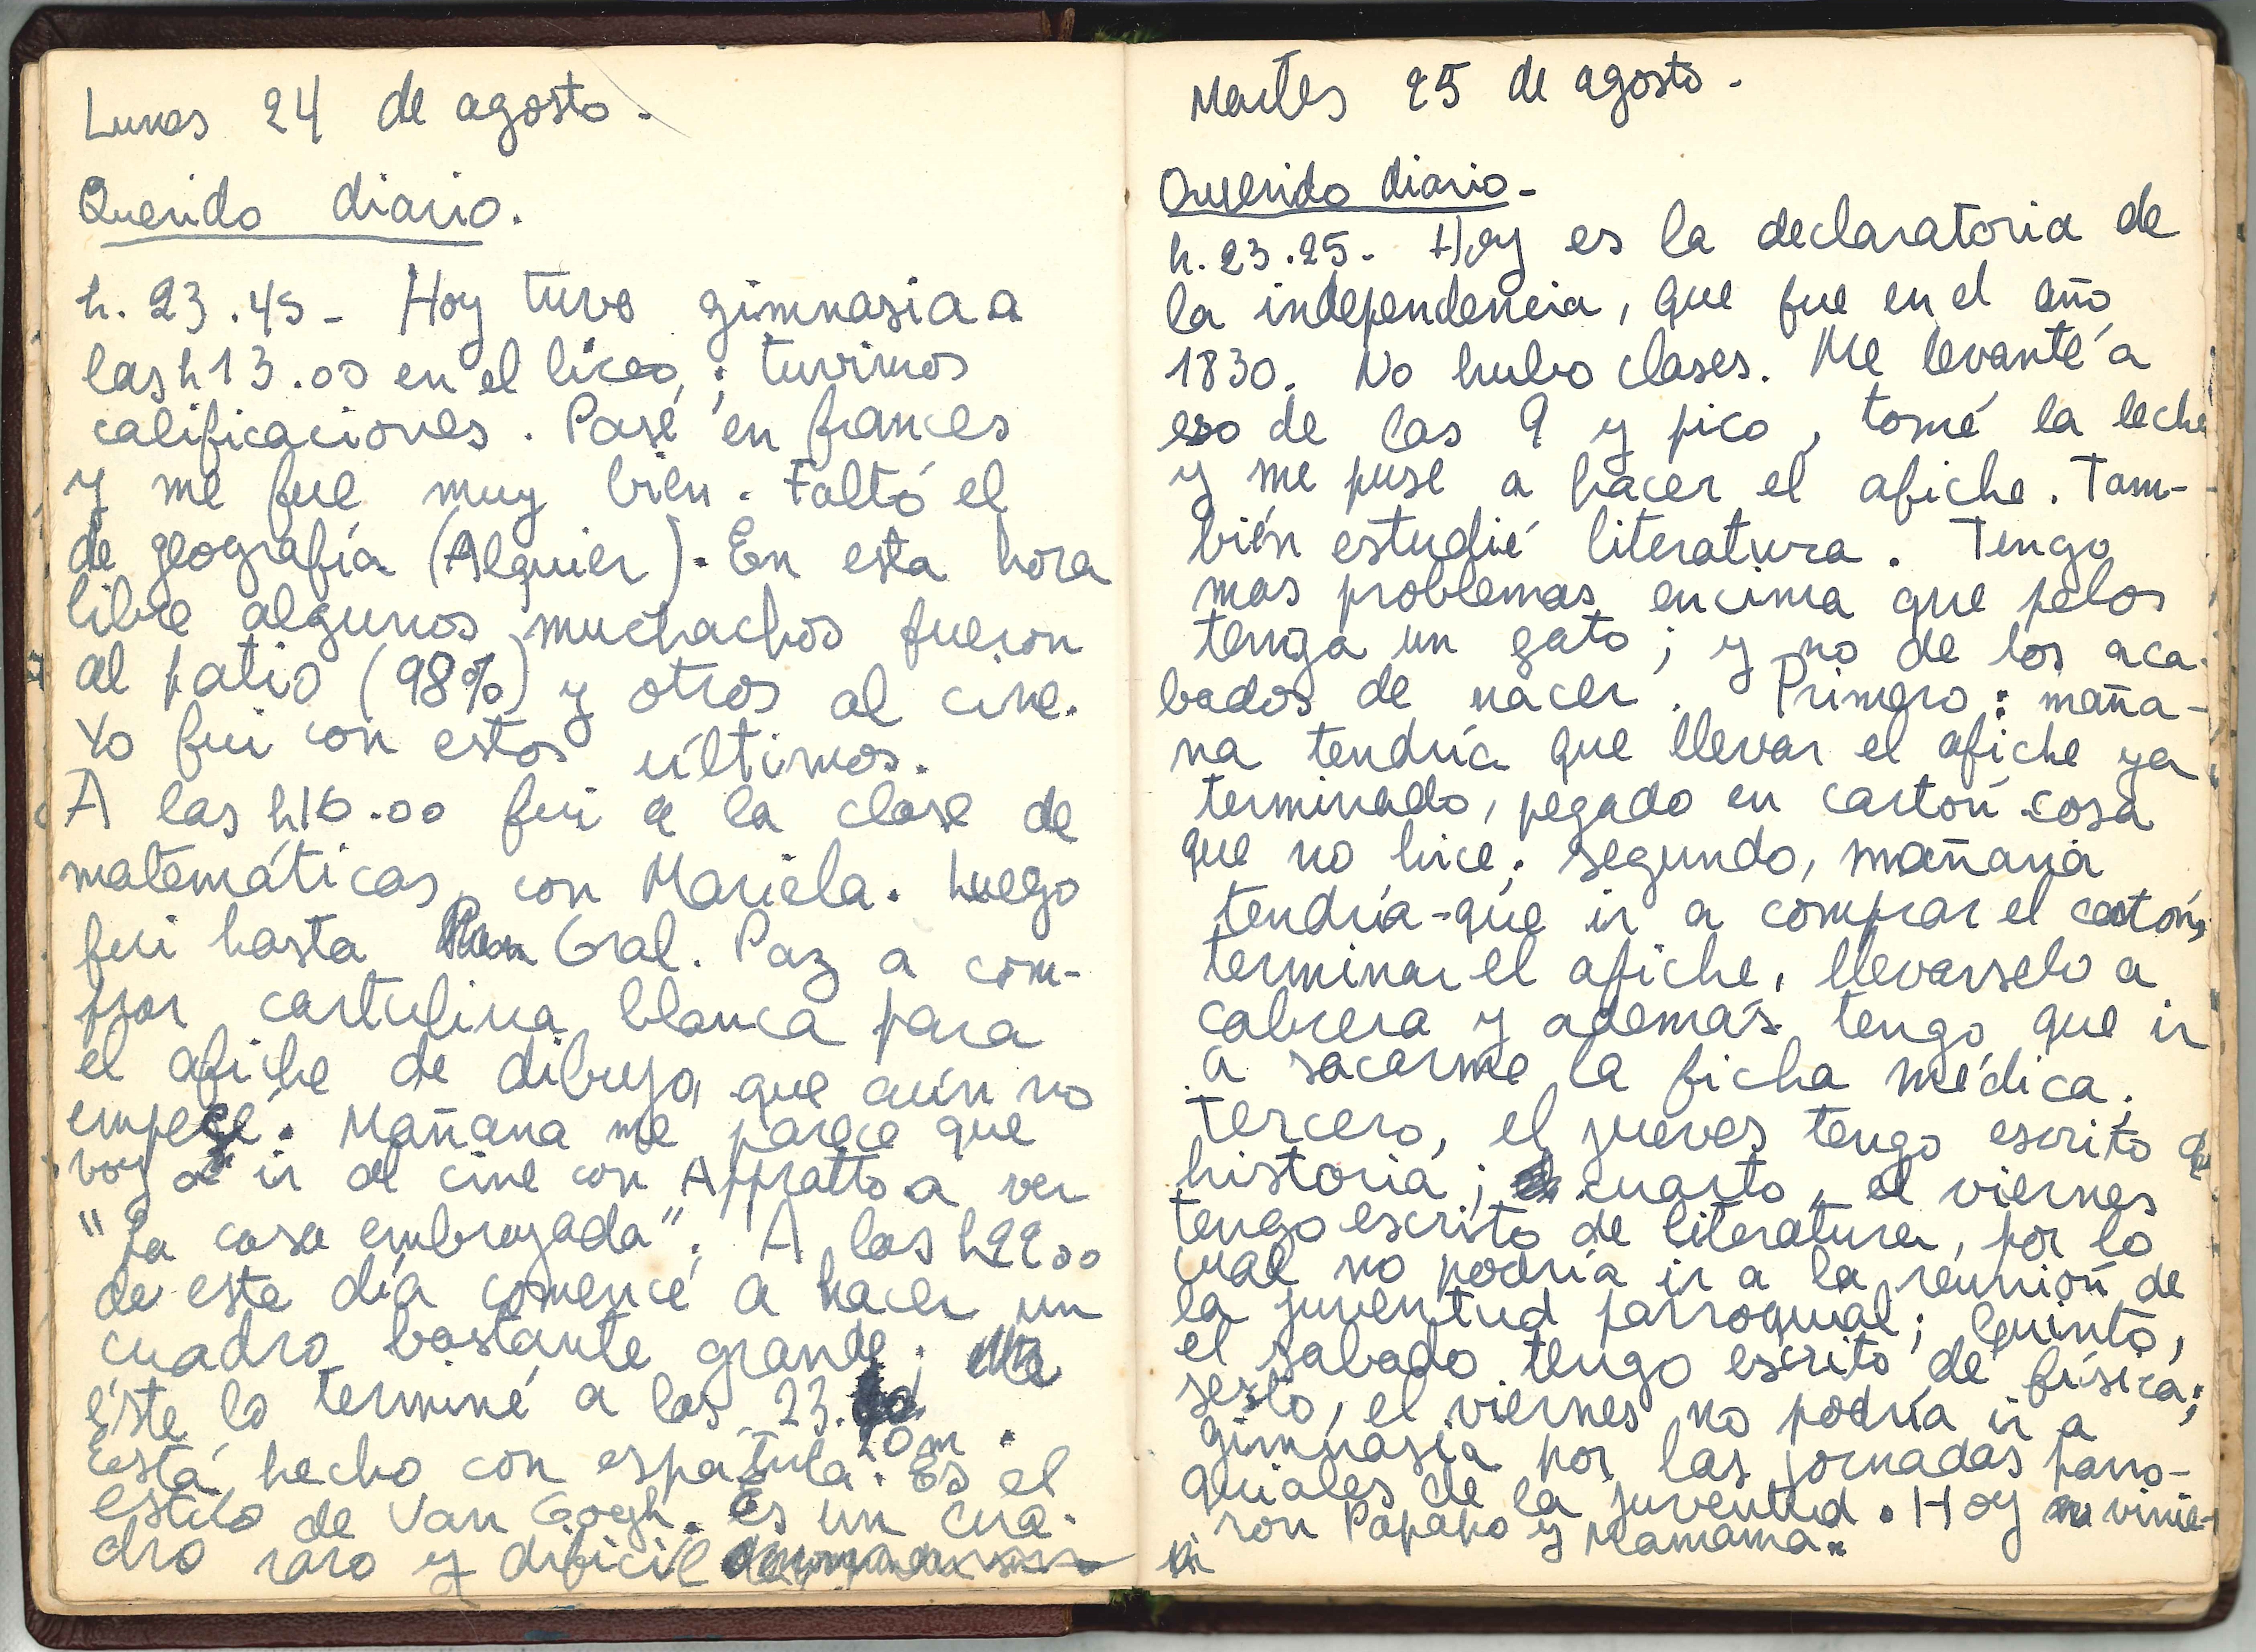 Lunes 24 de agosto.
Querido diario.
h. 23.45- Hoy tuve gimnasia a
las h 13.00 en el liceo; tuvimos
calificaciones. Pasé en frances
y me fue muy bien. Faltó el
de geografía (Alquier). En esta hora
libre algunos muchachos fueron
al patio (98%) y otros al cine.
Yo fui con estos últimos.
A las h16.00 fui a la clase de
matemáticas, con Mariela. Luego
fui hasta Gral. Paz a com-
prar cartulina blanca para
el afiche de dibujo, que aún no
empecé. Mañana me parece que
voy a ir al cine con Appratto a ver
"La casa embrujada". A las h2200
de este día comencé a hacer un
cuadro bastante grande;
éste lo terminé a las 23.
20m.
Está hecho con espatula. Es el
estilo de Van Gogh. Es un cua-
dro raro y dificil
Martes 25 de agosto.
Querido diario-
h. 23.25- Hoy es la declaratoria de
la independencia, que fue en el año
1830. No hubo clases. Me levanté a
eso de las 9 y pico, tomé la leche
y me puse a hacer el afiche. Tam-
bién estudié literatura. Tengo
mas problemas encima que pelos
tenga un gato; y no de los aca-
bados de nacer. Primero: maña-
na tendría que llevar el afiche ya
terminado, pegado en cartón cosa
que no hice; segundo, mañana
tendría-que ir a comprar el cartón,
terminar el afiche, llevarselo a
Cabrera y además tengo que ir
a sacarme la ficha médica;
Tercero, el jueves tengo escrito de
historia; cuarto, el viernes
tengo escrito de literatura, por lo
cual no podría ir a la reunión de
la juventud parroquial; Quinto,
el sabado tengo escrito de física;
sesto, el viernes no podría ir a
gimnasia por las jornadas parro-
quiales de la juventud. Hoy vinie-
ron Papapo y Mamama.